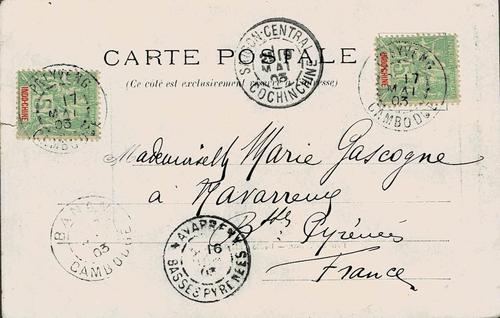 CARTE POSTALE
(Ce côté est exclusivement
SAIGON-CENTRAL
MAI
03
COCHINCHINE
PREYVENG
17
MAI
03
CAMBODGE
INDO-CHINE
15
PREYVENG
17
MAI
03
CAMBODGE
INDO-CHINE
Mademoiselle Marie Gascogne
à Navarrenx
Bsses Pyrénées
France
BANAM
03
CAMBODGE
NAVARRENX
16
03
BASSES PYRENEES